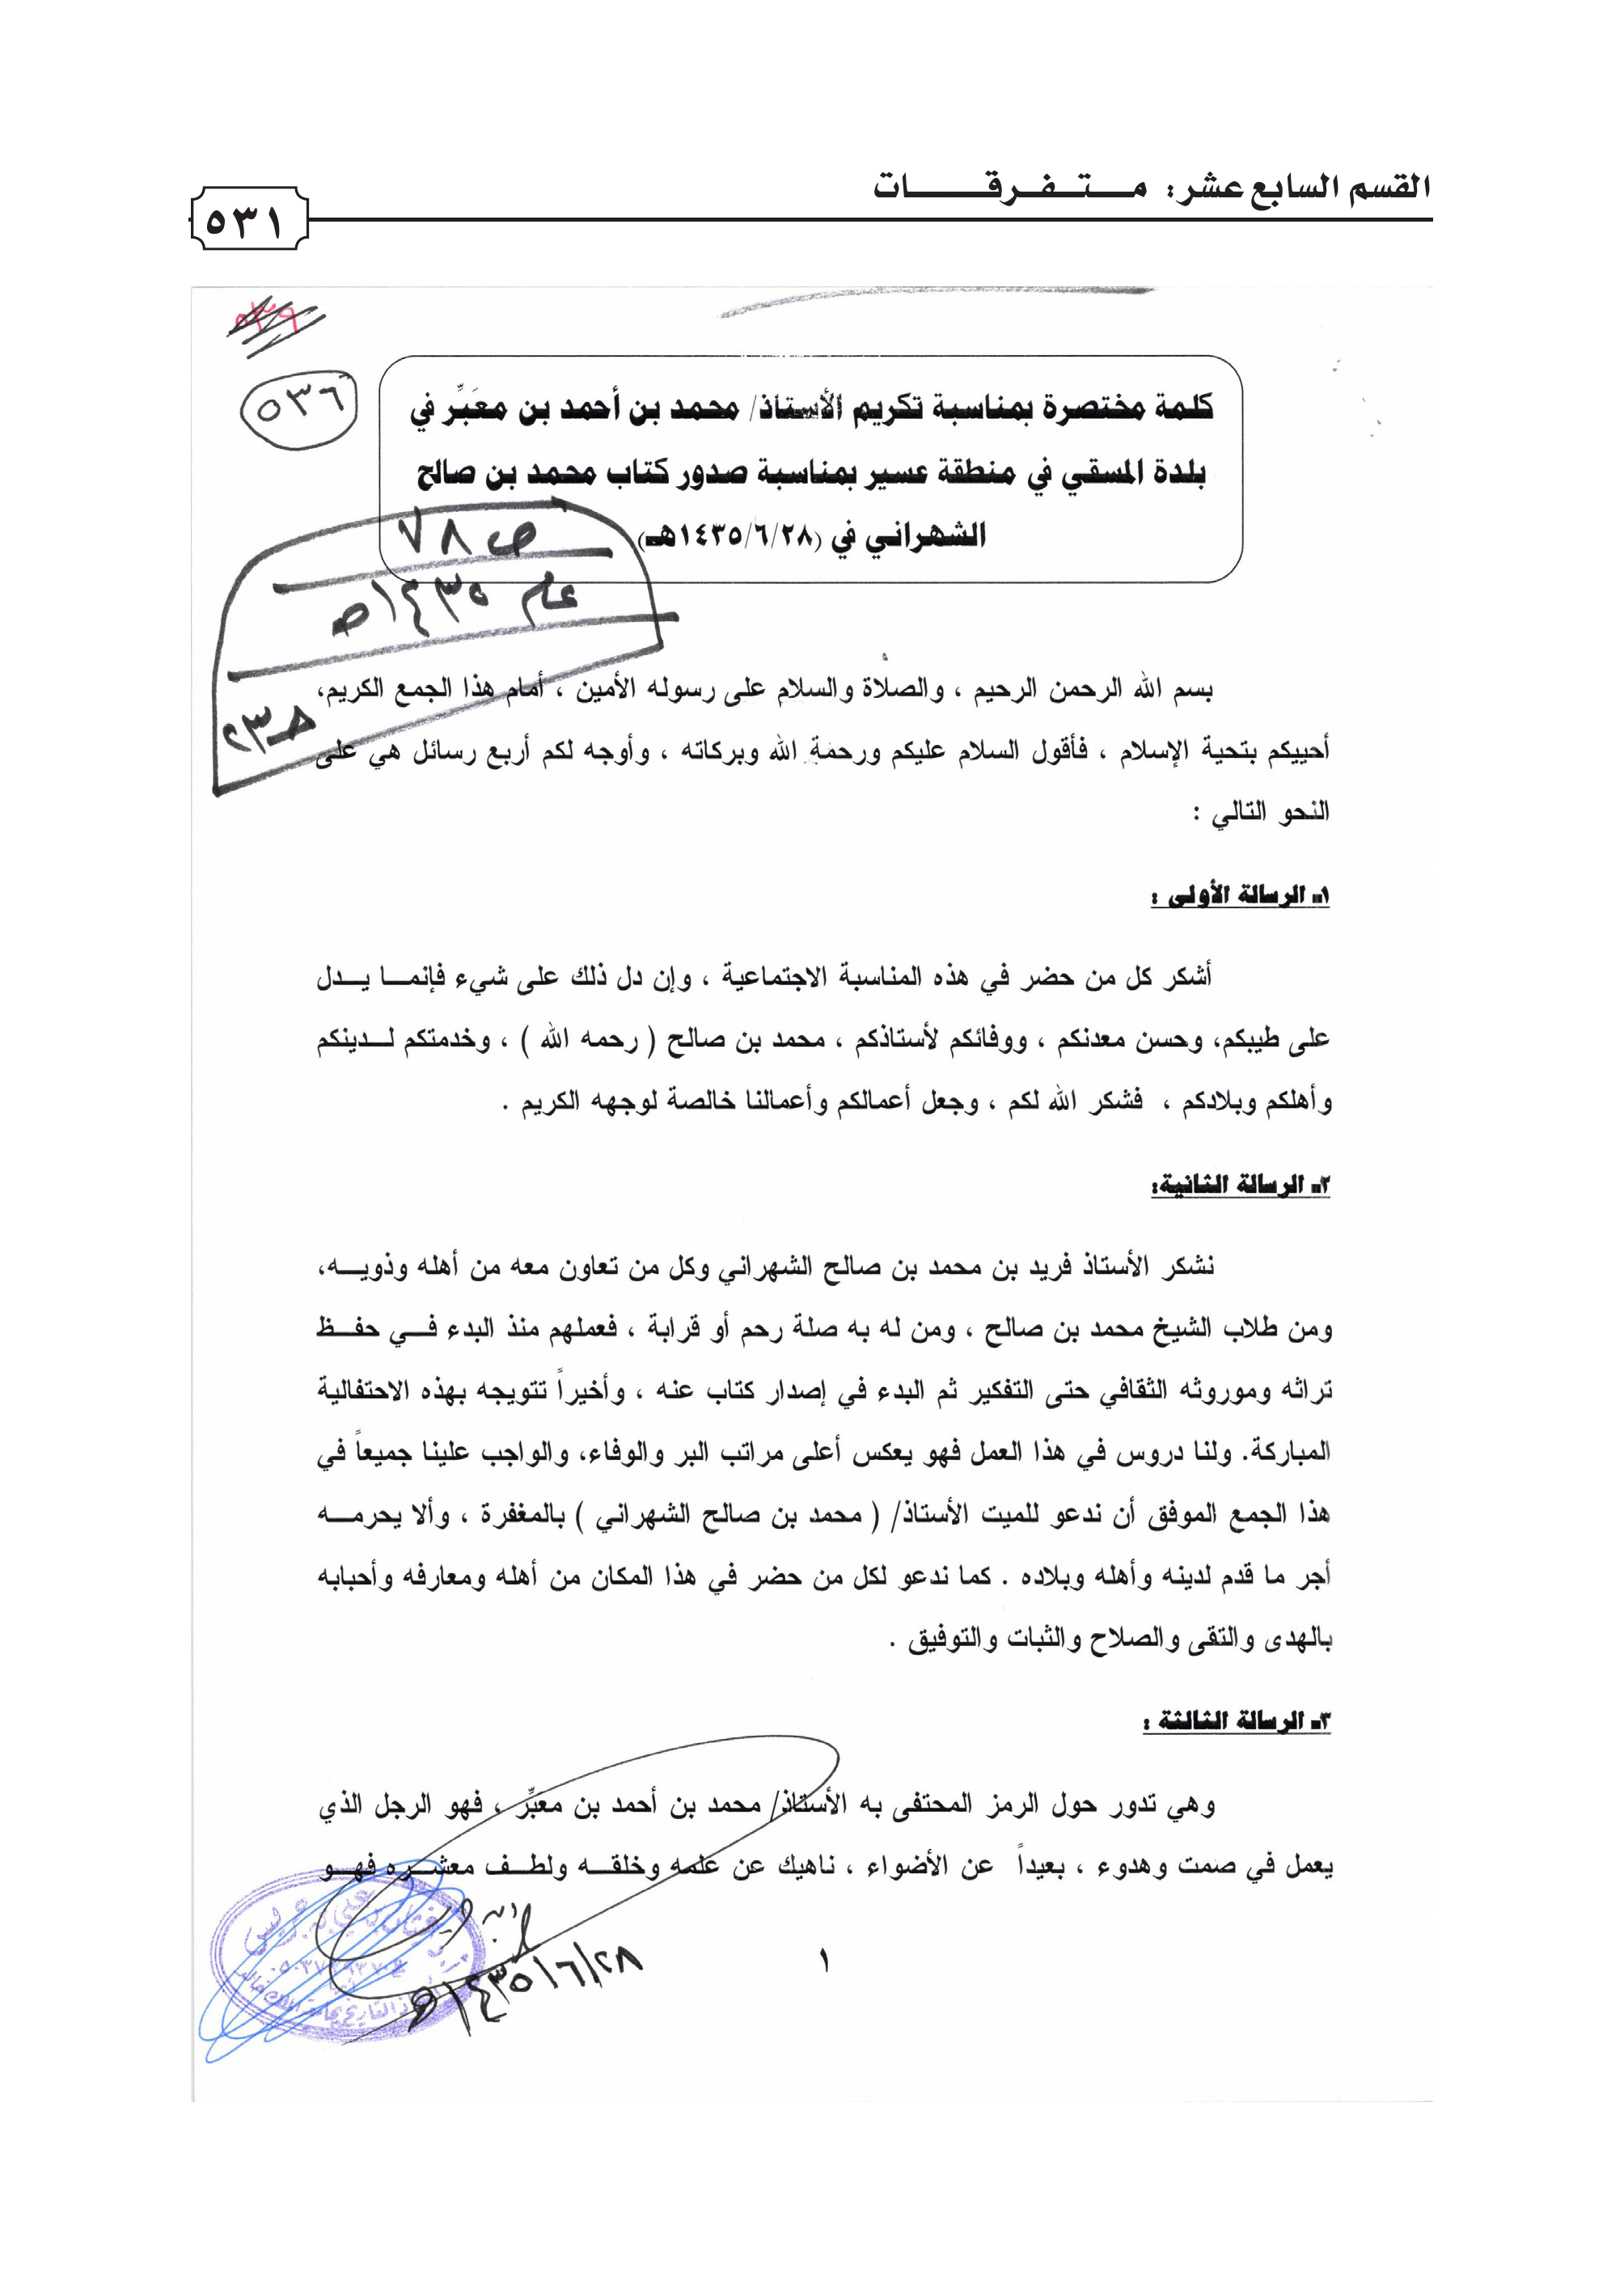 القسم السابع عشر: متفرقات
٥٣١
٥٣٩
٥٣٦
كلمة مختصرة بمناسبة تكريم الأستاذ/ محمد بن أحمد بن معَبِّر في
بلدة المسقي في منطقة عسير بمناسبة صدور كتاب محمد بن صالح
الشهراني في (١٤٣٥/٦/٢٨هـ)
ص ٧٨
عام ١٤٣٥هـ
بسم الله الرحمن الرحيم ، والصلاة والسلام على رسوله الأمين ، أمام هذا الجمع الكريم،
أحييكم بتحية الإسلام ، فأقول السلام عليكم ورحمة الله وبركاته ، وأوجه لكم أربع رسائل هي على
النحو التالي :
١ـ الرسالة الأولى :
أشكر كل من حضر في هذه المناسبة الاجتماعية ، وإن دل ذلك على شيء فإنما يدل
على طيبكم، وحسن معدنكم ، ووفائكم لأستاذكم ، محمد بن صالح ( رحمه الله ) ، وخدمتكم لدينكم
وأهلكم وبلادكم ، فشكر الله لكم ، وجعل أعمالكم وأعمالنا خالصة لوجهه الكريم .
٢ـ الرسالة الثانية:
نشكر الأستاذ فريد بن محمد بن صالح الشهراني وكل من تعاون معه من أهله وذويه،
ومن طلاب الشيخ محمد بن صالح ، ومن له به صلة رحم أو قرابة ، فعملهم منذ البدء في حفظ
تراثه وموروثه الثقافي حتى التفكير ثم البدء في إصدار كتاب عنه ، وأخيراً تتويجه بهذه الاحتفالية
المباركة. ولنا دروس في هذا العمل فهو يعكس أعلى مراتب البر والوفاء، والواجب علينا جميعاً في
هذا الجمع الموفق أن ندعو للميت الأستاذ/ ( محمد بن صالح الشهراني ) بالمغفرة ، وألا يحرمه
أجر ما قدم لدينه وأهله وبلاده . كما ندعو لكل من حضر في هذا المكان من أهله ومعارفه وأحبابه
بالهدى والتقى والصلاح والثبات والتوفيق .
٣ـ الرسالة الثالثة :
وهي تدور حول الرمز المحتفى به الأستاذ/ محمد بن أحمد بن معبِّر ، فهو الرجل الذي
يعمل في صمت وهدوء ، بعيداً عن الأضواء ، ناهيك عن علمه وخلقه ولطف معشره فهو
١٤٣٥/٦/٢٨هـ
١